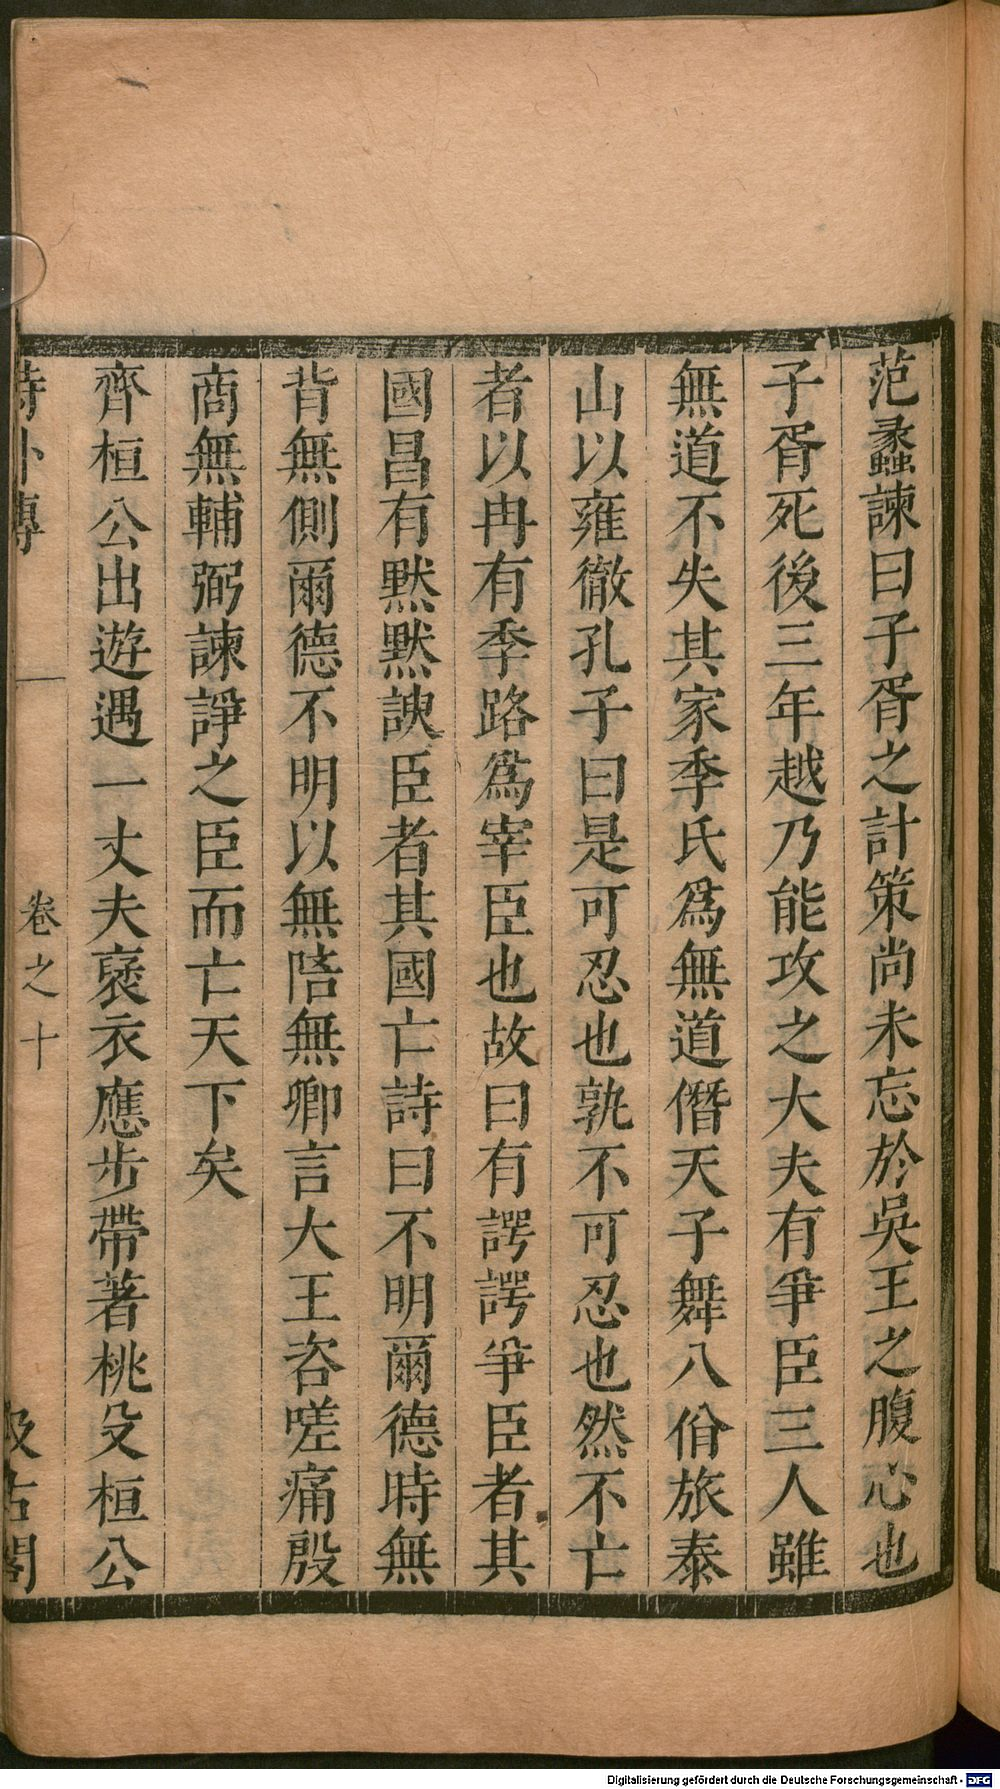 范蠡諫曰子胥之計策尚未忘於吳王之腹心也
子胥死後三年越乃能攻之大夫有爭臣三人雖
無道不失其家季氏爲無道僭天子舞八佾旅泰
山以雍徹孔子曰是可忍也孰不可忍也然不亡
者以冉有季路爲宰臣也故曰有諤諤爭臣者其
國昌有默默諛臣者其國亡詩曰不明爾德時無
背無側爾德不明以無陪無卿言大王咨嗟痛殷
商無輔弼諫諍之臣而亡天下矣
齊桓公出遊遇一丈夫褒衣應步帶著桃殳桓公
詩外傳
卷之十
汲古閣
Digitalisierung gefördert durch die Deutsche Forschungsgemeinschaft - DFG